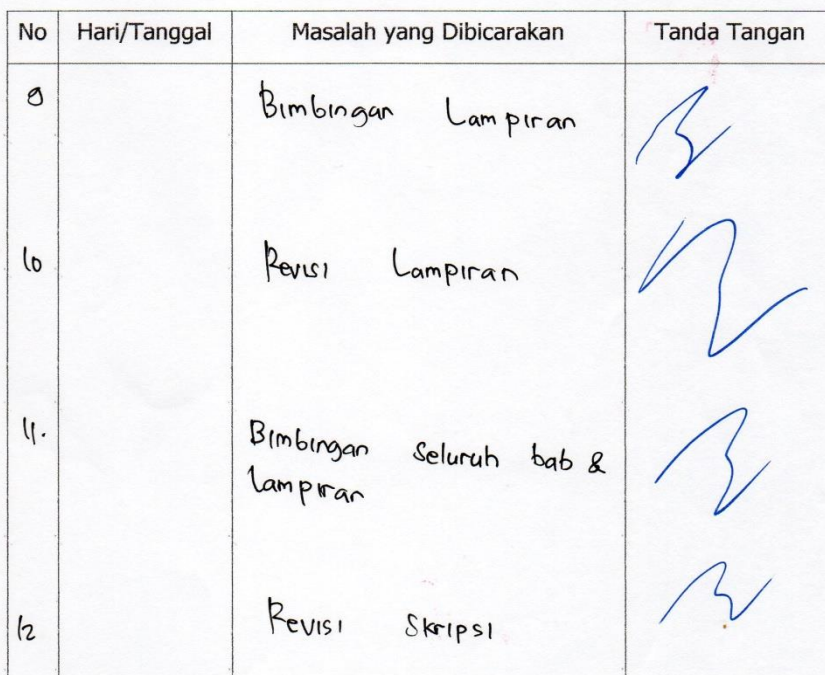 No Hari/Tanggal Masalah yang Dibicarakan Tanda Tangan
9 Bimbingan Lampiran
10 Revisi Lampiran
11. Bimbingan Seluruh bab &
lampiran
12 Revisi Skripsi